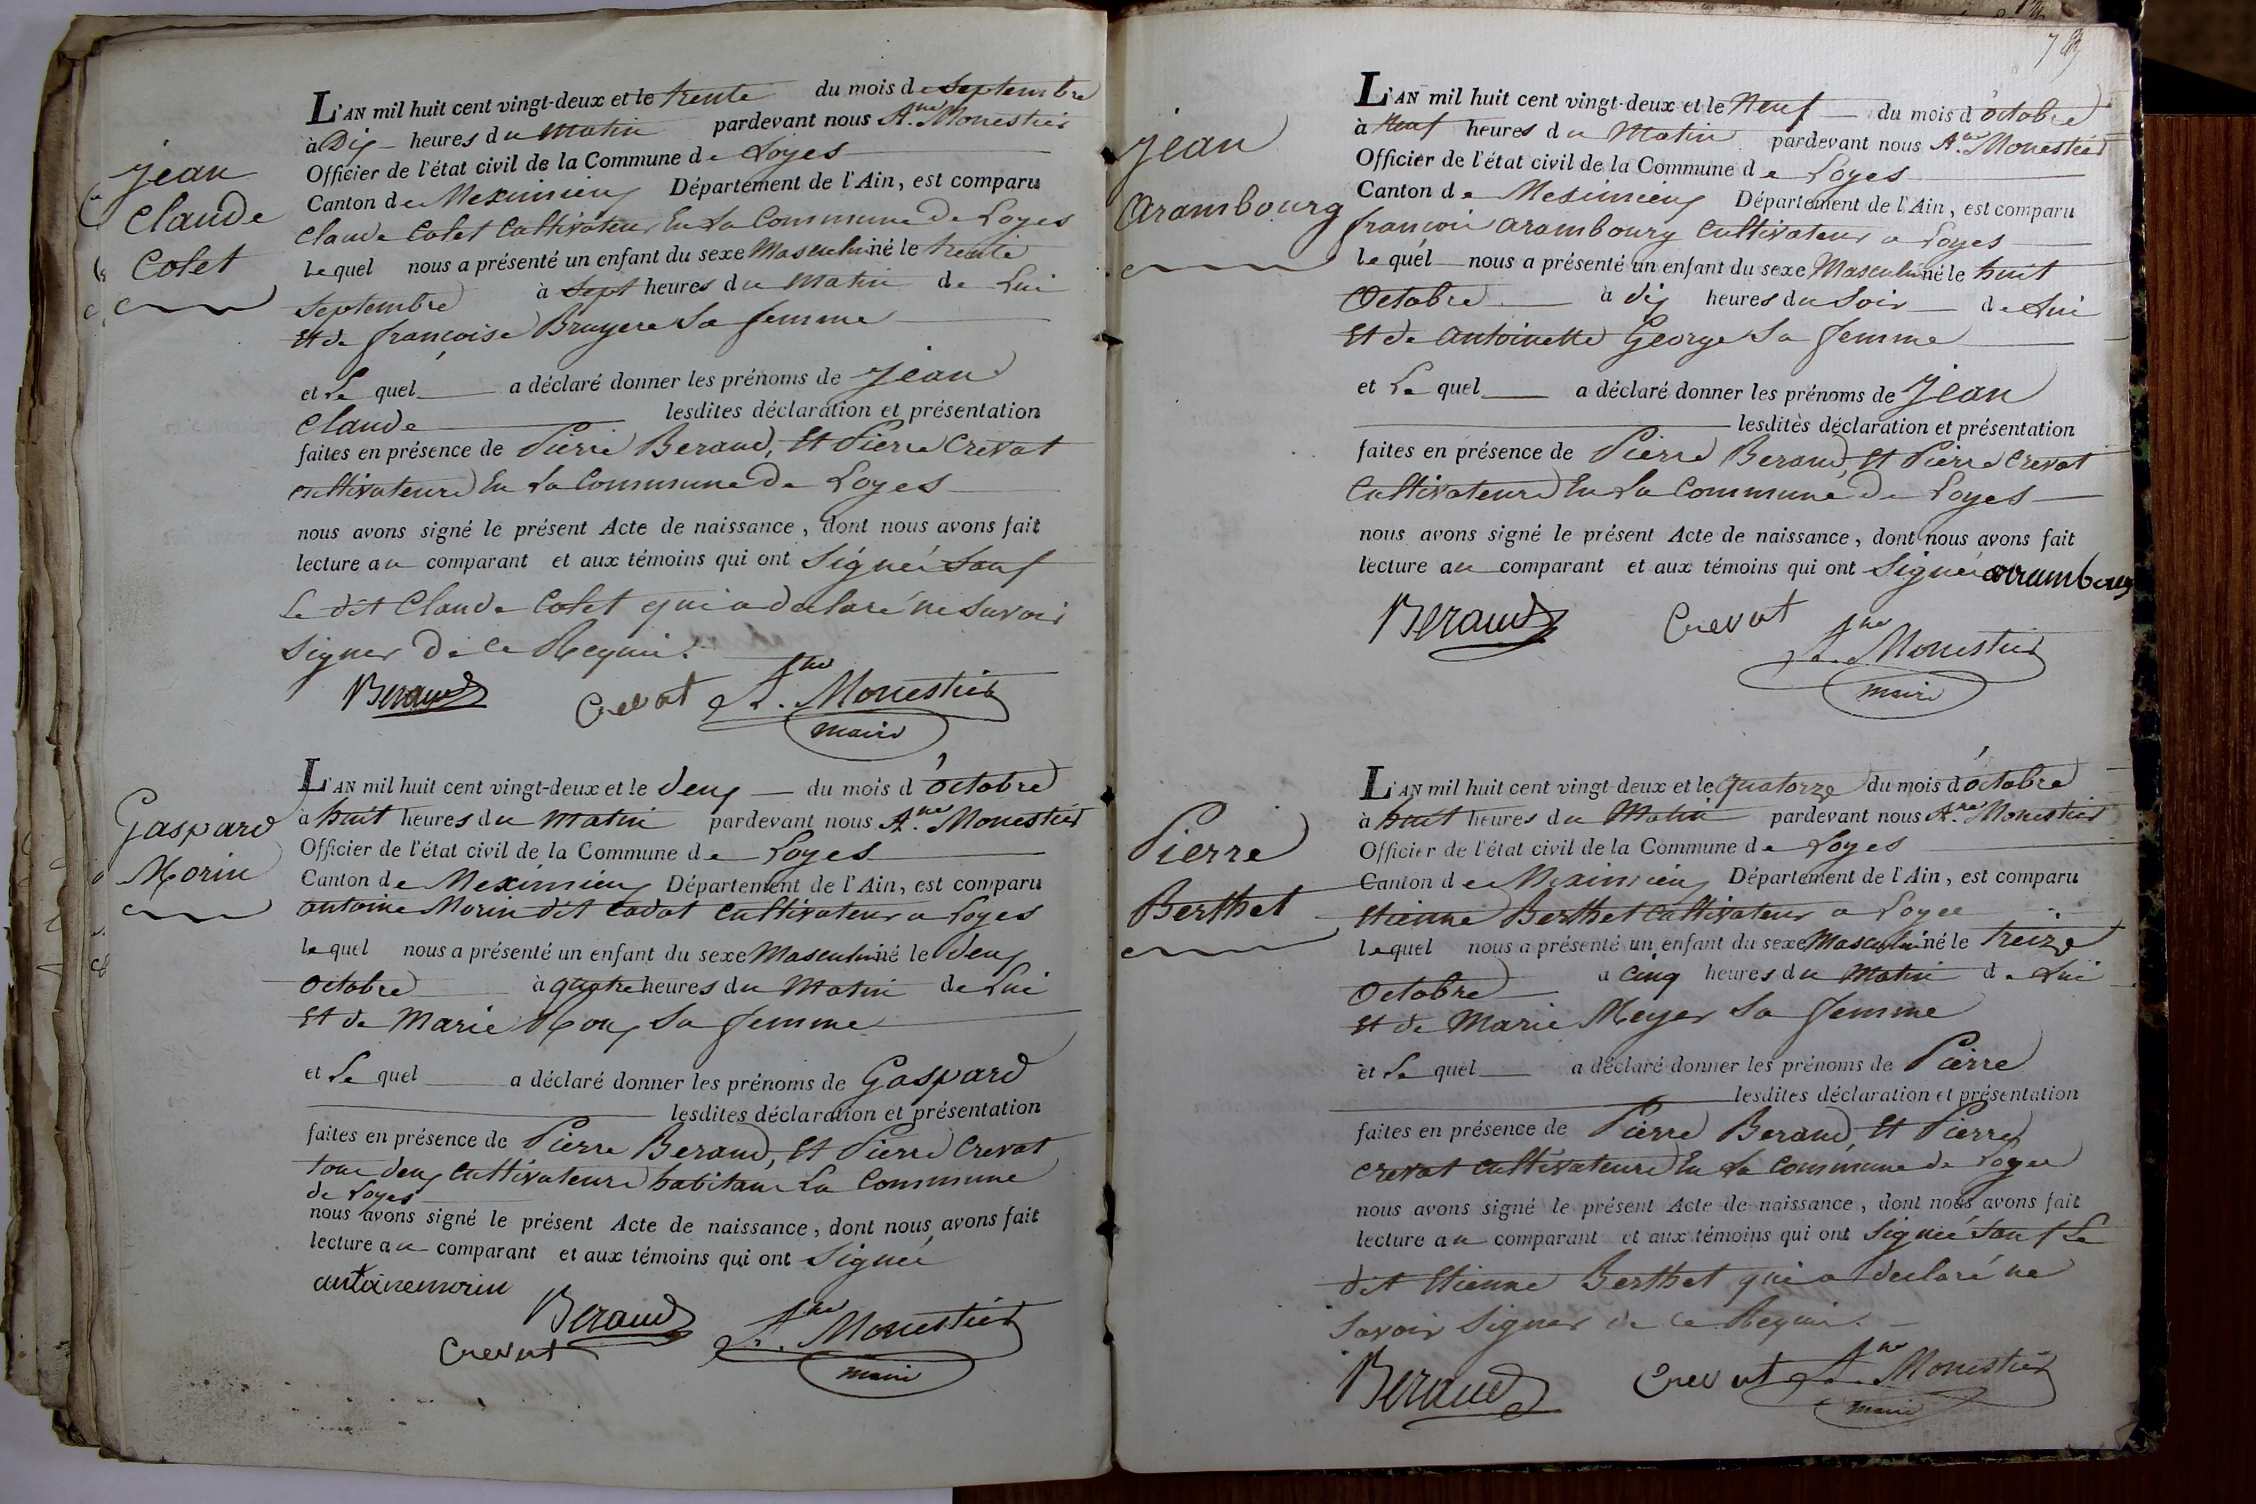 Jean
Claude
Colet
L'AN mil huit cent vingt-deux et le trente du mois de Septembre
à Dix heures du Matin pardevant nous A.ne Monestier
Officier de l'état civil de la Commune de Loyes
Canton de Meximieux Département de l'Ain, est comparu
Claude Colet Cultivateur En La Commune De Loyes
lequel nous a présenté un enfant du sexe Masculin né le trente
Septembre à Sept heures du Matin de Lui
Et de françoise Bruyere Sa femme
et Le quel a déclaré donner les prénoms de Jean
Claude lesdites déclaration et présentation
faites en présence de Pierre Beraud, Et Pierre Crevat
cultivateurs En La Commune De Loyes
nous avons signé le présent Acte de naissance, dont nous avons fait
lecture au comparant et aux témoins qui ont Signé Sauf
Le dit Claude Colet qui a declaré ne Savoir
Signer De ce Requis.
Beraud Crevat A.ne Monestier
maire
Gaspard
Morin
L'AN mil huit cent vingt-deux et le deux du mois d'octobre
à huit heures du Matin pardevant nous A.ne Monestier
Officier de l'état civil de la Commune de Loyes
Canton de Meximieux Département de l'Ain, est comparu
antoine Morin dit Cadat Cultivateur a Loyes
lequel nous a présenté un enfant du sexe Masculin né le deux
octobre à quatre heures du Matin de Lui
Et de Marie Roux Sa femme
et Le quel a déclaré donner les prénoms de Gaspard
lesdites déclaration et présentation
faites en présence de Pierre Beraud, Et Pierre Crevat
tous deux Cultivateurs habitans La Commune
de Loyes
nous avons signé le présent Acte de naissance, dont nous avons fait
lecture au comparant et aux témoins qui ont Signé
antoine morin
Beraud
Crevat A.ne Monestier
maire
Jean
Arambourg
L'AN mil huit cent vingt-deux et le Neuf du mois d'octobre
à Neuf heures du Matin pardevant nous A.ne Monestier
Officier de l'état civil de la Commune de Loyes
Canton de Meximieux Département de l'Ain, est comparu
françois arambourg Cultivateur a Loyes
le quel nous a présenté un enfant du sexe Masculin né le huit
Octobre à dix heures du Soir de Lui
Et de antoinette George Sa femme
et Le quel a déclaré donner les prénoms de Jean
lesdites déclaration et présentation
faites en présence de Pierre Beraud, Et Pierre Crevat
Cultivateurs En La Commune De Loyes
nous avons signé le présent Acte de naissance, dont nous avons fait
lecture au comparant et aux témoins qui ont Signé arambourg
Beraud Crevat
A.ne Monestier
maire
Pierre
Berthet
L'AN mil huit cent vingt-deux et le quatorze du mois d'octobre
à huit heures du Matin pardevant nous A.ne Monestier
Officier de l'état civil de la Commune de Loyes
Canton de Meximieux Département de l'Ain, est comparu
Etienne Berthet Cultivateur a Loyes
lequel nous a présenté un enfant du sexe Masculin né le treize
Octobre à Cinq heures du Matin de Lui
Et de Marie Meyer Sa femme
et Le quel a déclaré donner les prénoms de Pierre
lesdites déclaration et présentation
faites en présence de Pierre Beraud, Et Pierre
Crevat Cultivateurs En La Commune de Loyes
nous avons signé le présent Acte de naissance, dont nous avons fait
lecture au comparant et aux témoins qui ont Signé Sauf Le
dit Etienne Berthet qui a declaré ne
Savoir Signer de ce Requis.
Beraud Crevat A.ne Monestier
maire